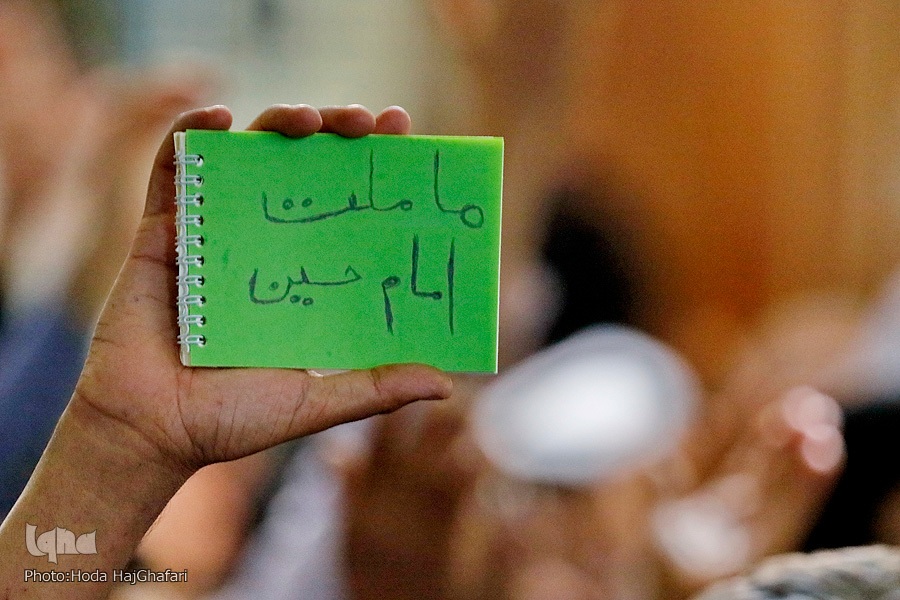 ما ملت
امام حسین
iqna
Photo:Hoda HajGhafari